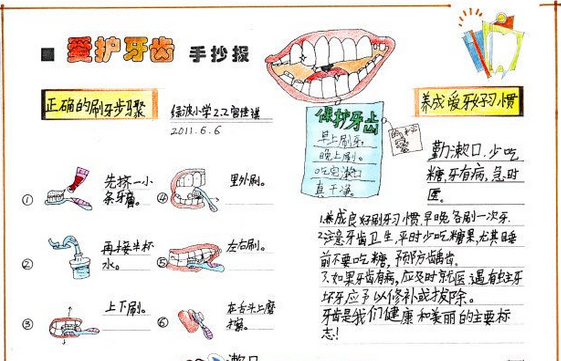 爱护牙齿 手抄报
正确的刷牙步骤
绿波小学2.2
2011.6.6
① 先挤一小
条牙膏。
② 再接半杯
水。
③ 上下刷。
④ 里外刷。
⑤ 左右刷。
⑥ 在舌头上磨
漱口
保护牙齿
早上刷牙
晚上刷。
吃完漱口
真干净。
养成爱牙好习惯
勤漱口,少吃
糖,牙有病,急时
医。
1.养成良好刷牙习惯,早晚各刷一次牙.
2.注意牙齿卫生,平时少吃糖果,尤其睡
前不要吃糖,预防龋齿。
3.如果牙齿有病,应及时就医,遇有蛀牙
坏牙应予以修补或拔除。
牙齿是我们健康和美丽的主要标
志!